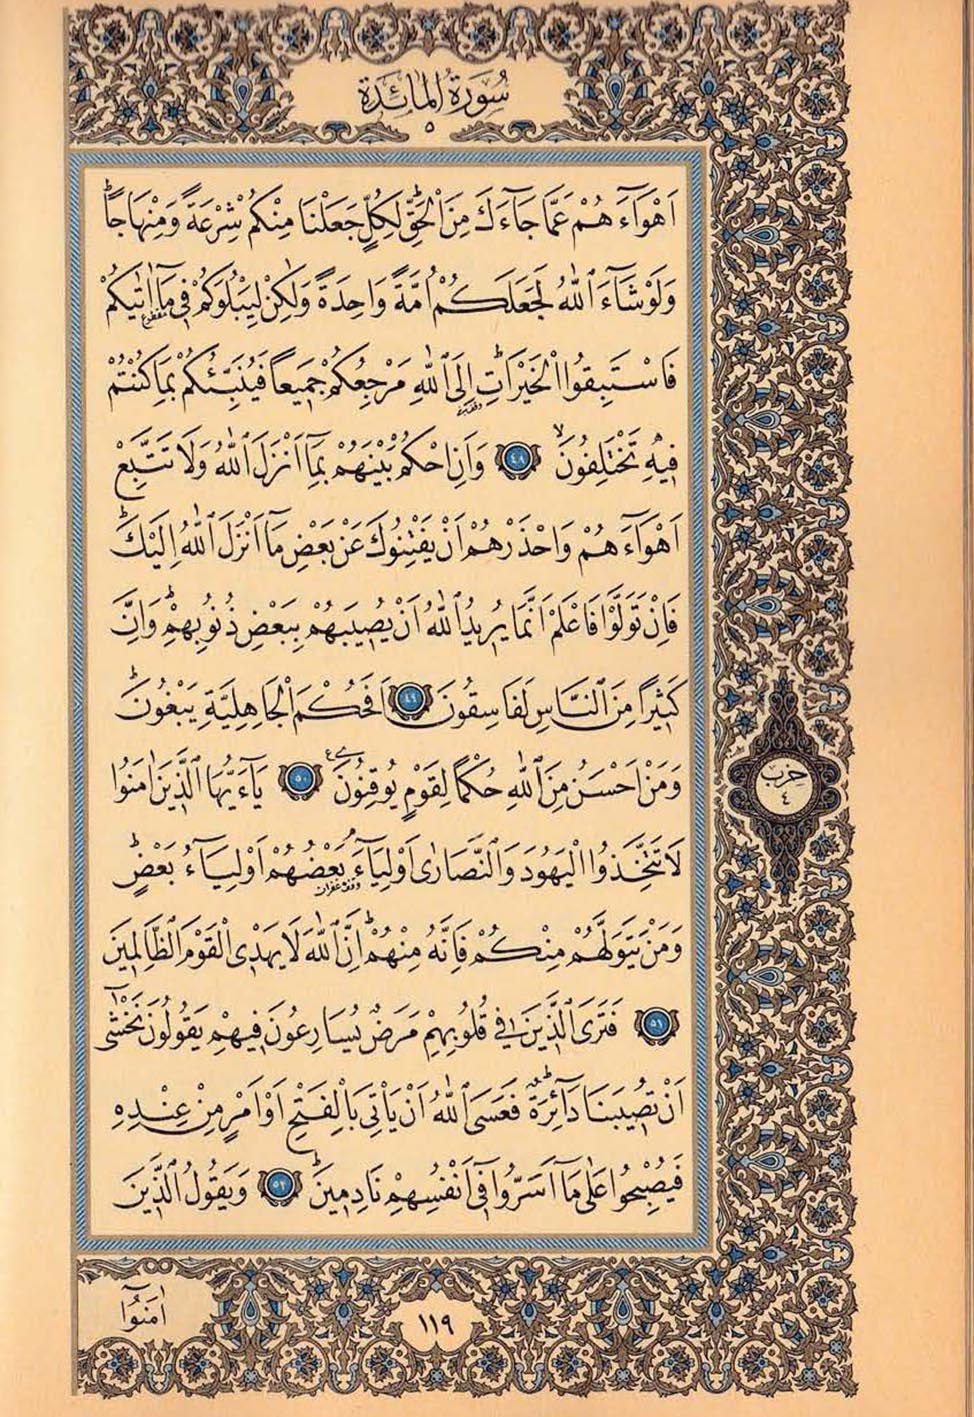 سُورَةُ الْمَائِدَةِ
٥
اَهْوَٓاءَهُمْ عَمَّا جَٓاءَكَ مِنَ الْحَقِّ لِكُلٍّ جَعَلْنَا مِنْكُمْ شِرْعَةً وَمِنْهَاجًاۜ
وَلَوْ شَٓاءَ اللّٰهُ لَجَعَلَكُمْ اُمَّةً وَاحِدَةً وَلٰكِنْ لِيَبْلُوَكُمْ فٖي مَٓا اٰتٰيكُمْ
فَاسْتَبِقُوا الْخَيْرَاتِۜ اِلَى اللّٰهِ مَرْجِعُكُمْ جَمٖيعًا فَيُنَبِّئُكُمْ بِمَا كُنْتُمْ
فٖيهِ تَخْتَلِفُونَۙ ٤٨ وَاَنِ احْكُمْ بَيْنَهُمْ بِمَٓا اَنْزَلَ اللّٰهُ وَلَا تَتَّبِعْ
اَهْوَٓاءَهُمْ وَاحْذَرْهُمْ اَنْ يَفْتِنُوكَ عَنْ بَعْضِ مَٓا اَنْزَلَ اللّٰهُ اِلَيْكَۜ
فَاِنْ تَوَلَّوْا فَاعْلَمْ اَنَّمَا يُرٖيدُ اللّٰهُ اَنْ يُصٖيبَهُمْ بِبَعْضِ ذُنُوبِهِمْۜ وَاِنَّ
كَثٖيرًا مِنَ النَّاسِ لَفَاسِقُونَ ٤٩ اَفَحُكْمَ الْجَاهِلِيَّةِ يَبْغُونَۜ
وَمَنْ اَحْسَنُ مِنَ اللّٰهِ حُكْمًا لِقَوْمٍ يُوقِنُونَ ٥٠ يَٓا اَيُّهَا الَّذٖينَ اٰمَنُوا
لَا تَتَّخِذُوا الْيَهُودَ وَالنَّصَارٰٓى اَوْلِيَٓاءَۢ بَعْضُهُمْ اَوْلِيَٓاءُ بَعْضٍۜ
وَمَنْ يَتَوَلَّهُمْ مِنْكُمْ فَاِنَّهُ مِنْهُمْۜ اِنَّ اللّٰهَ لَا يَهْدِي الْقَوْمَ الظَّالِمٖينَ
٥١ فَتَرَى الَّذٖينَ فٖي قُلُوبِهِمْ مَرَضٌ يُسَارِعُونَ فٖيهِمْ يَقُولُونَ نَخْشٰٓى
اَنْ تُصٖيبَنَا دَٓائِرَةٌۜ فَعَسَى اللّٰهُ اَنْ يَأْتِيَ بِالْفَتْحِ اَوْ اَمْرٍ مِنْ عِنْدِهٖ
فَيُصْبِحُوا عَلٰى مَٓا اَسَرُّوا فٖٓي اَنْفُسِهِمْ نَادِمٖينَۜ ٥٢ وَيَقُولُ الَّذٖينَ
حزب
٤
اٰمَنُٓوا
١١٩